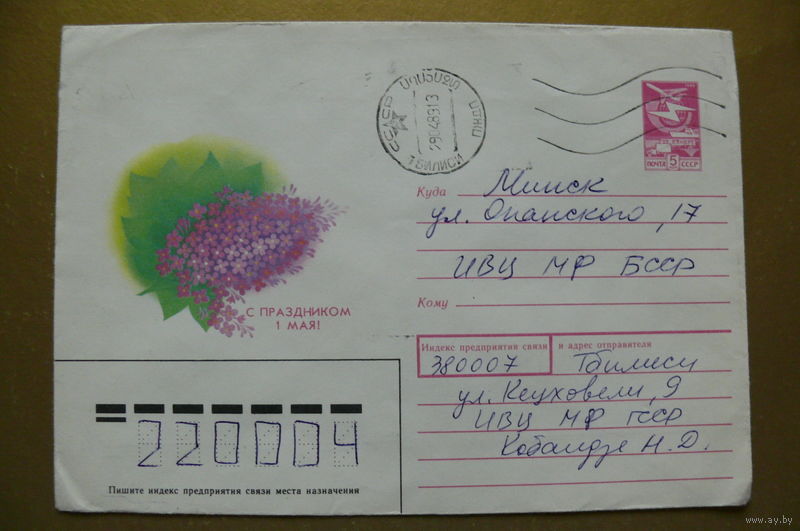 СССР
ТБИЛИСИ
ПОЧТА 5 СССР
Куда Минск
ул. Опанского, 17
ИВЦ МФ БССР
Кому
С ПРАЗДНИКОМ
1 МАЯ!
Индекс предприятия связи и адрес отправителя
380007 Тбилиси
ул. Кецховели, 9
ИВЦ МФ ГССР
Кобаидзе Н.Д.
220004
Пишите индекс предприятия связи места назначения
www.ay.by